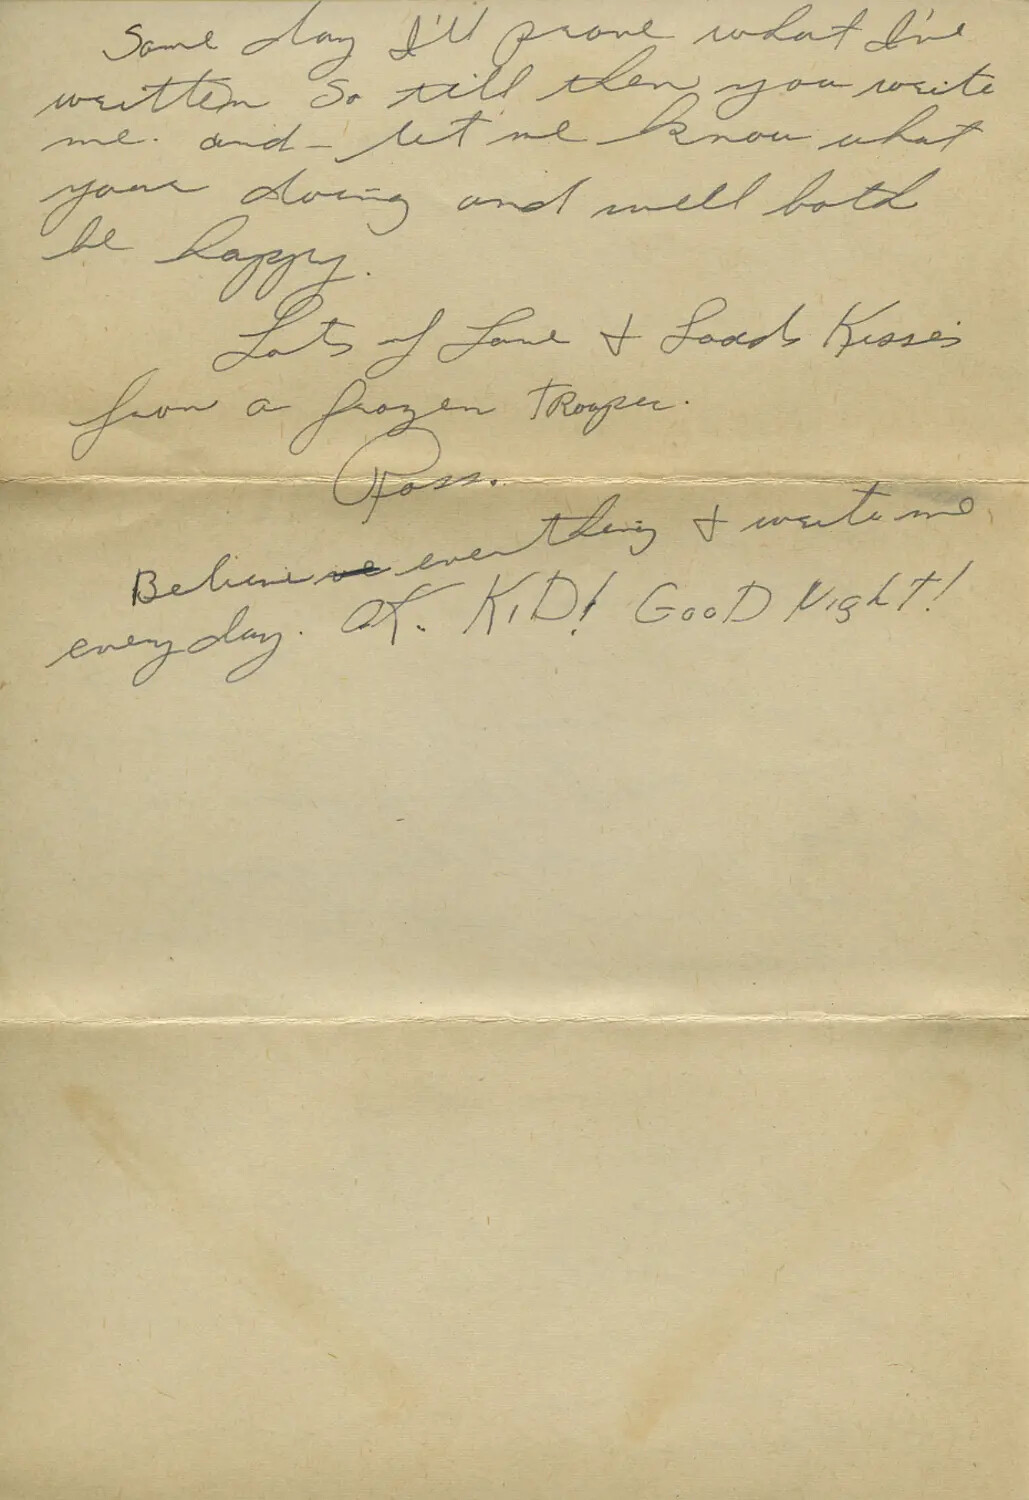 Some day I'll prove what I've
written So till then you write
me. and - let me know what
your doing and well both
be happy.
Lots of Love & Loads Kisses
from a frozen TRooper.
Ross.
Believe everthing & write me
every day. OK. KiD! GooD Night!